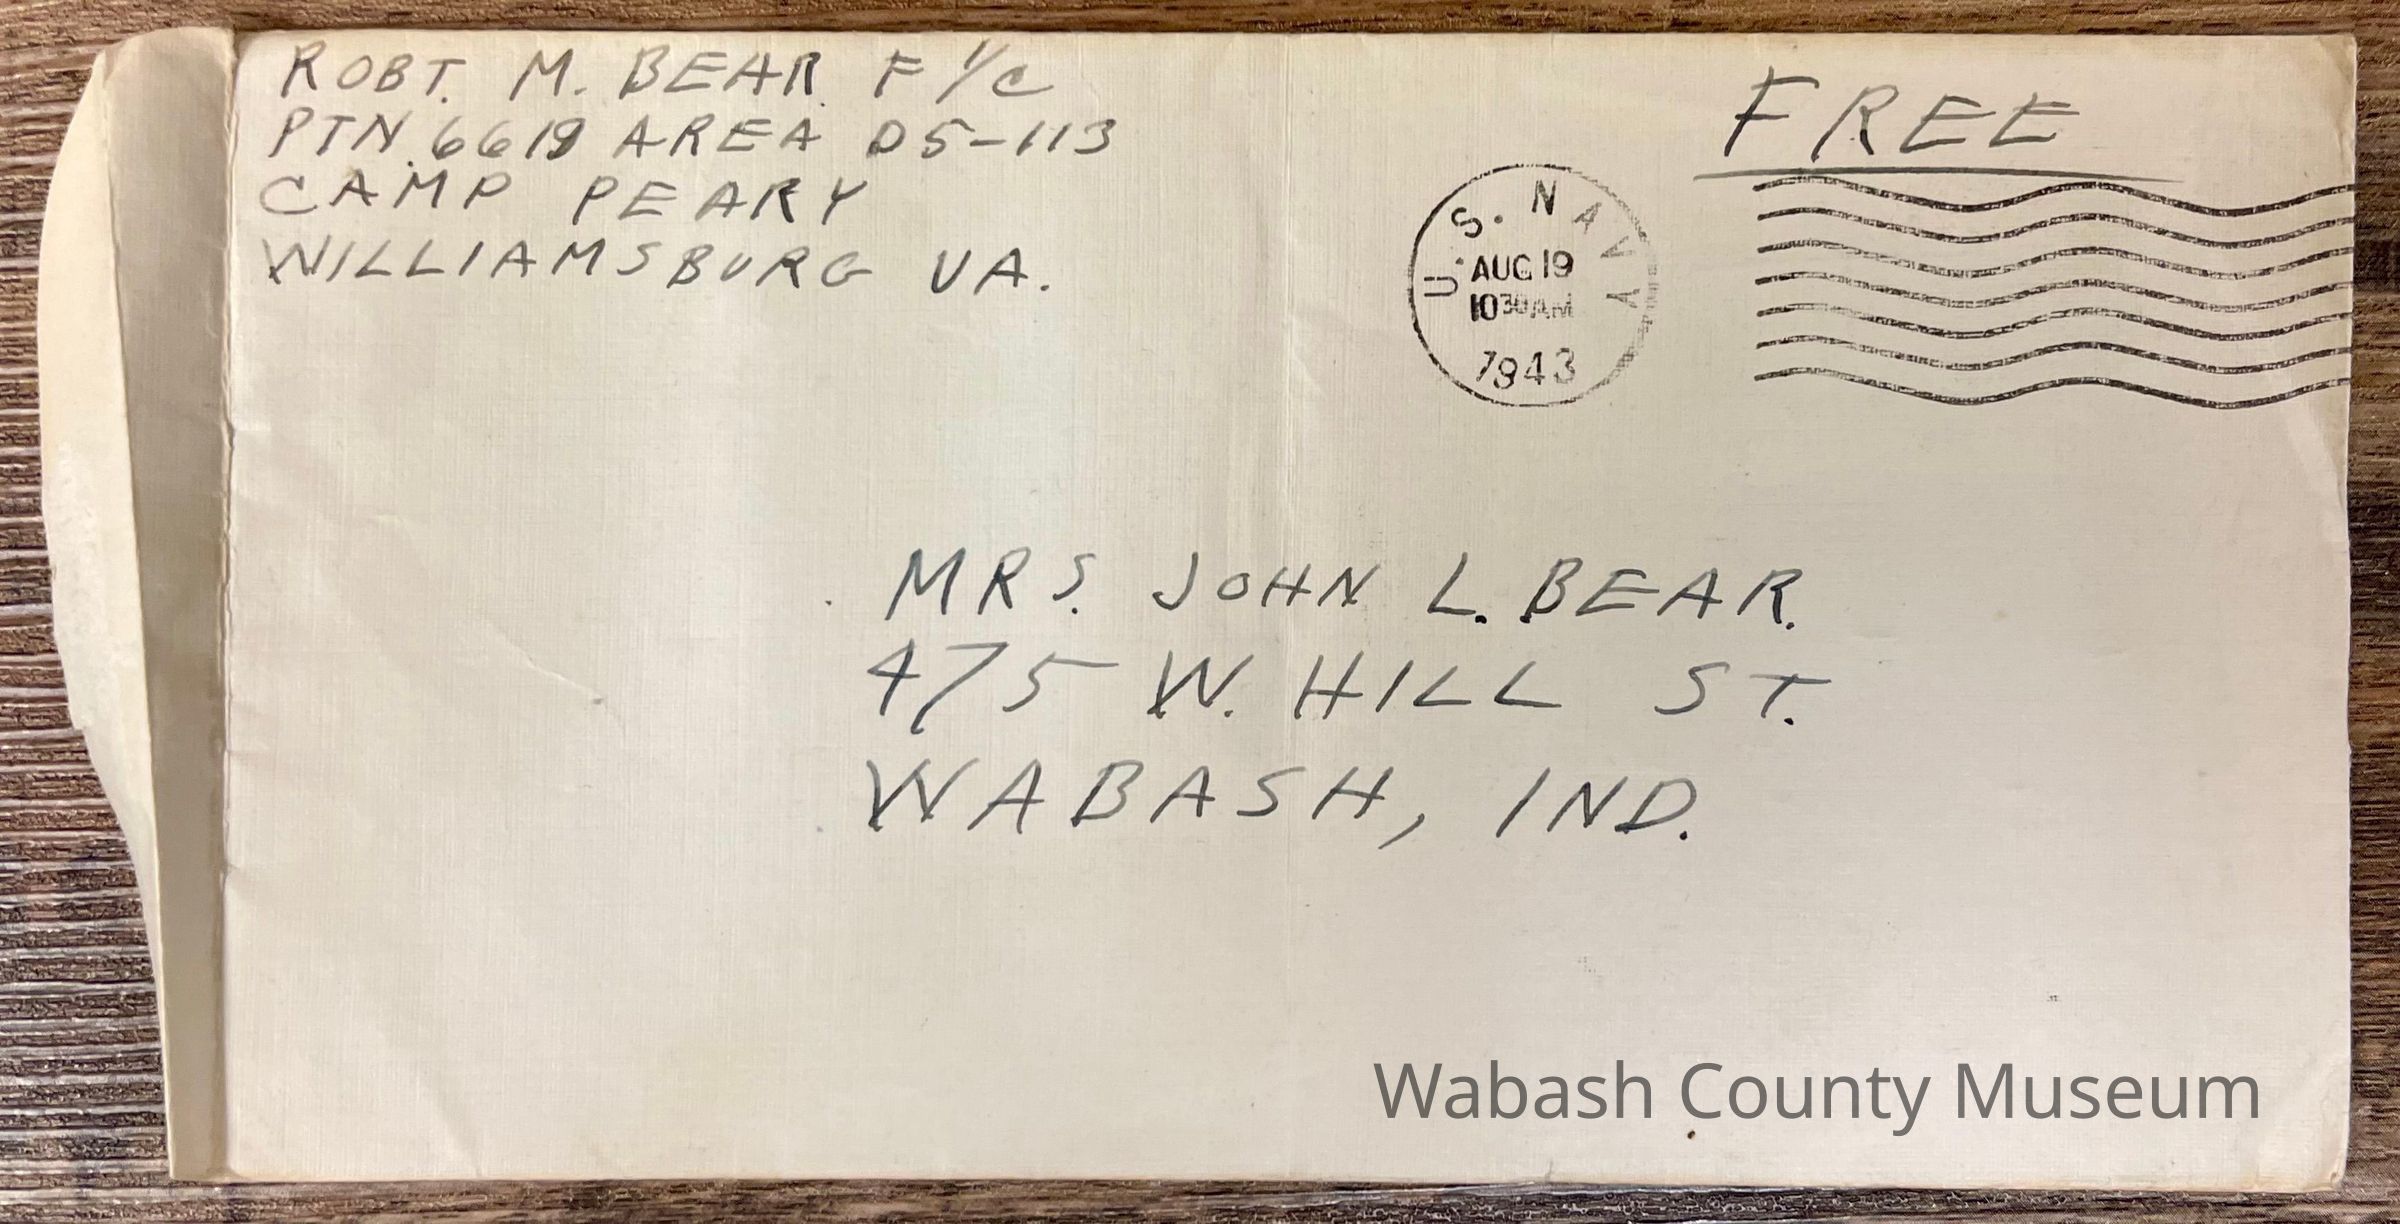 ROBT. M. BEAR F 1/C
PTN. 6619 AREA D5-113
CAMP PEARY
WILLIAMSBURG VA.
FREE
U.S. NAVY
AUG 19
10 30 AM
1943
MRS. JOHN L. BEAR.
475 W. HILL ST.
WABASH, IND.
Wabash County Museum